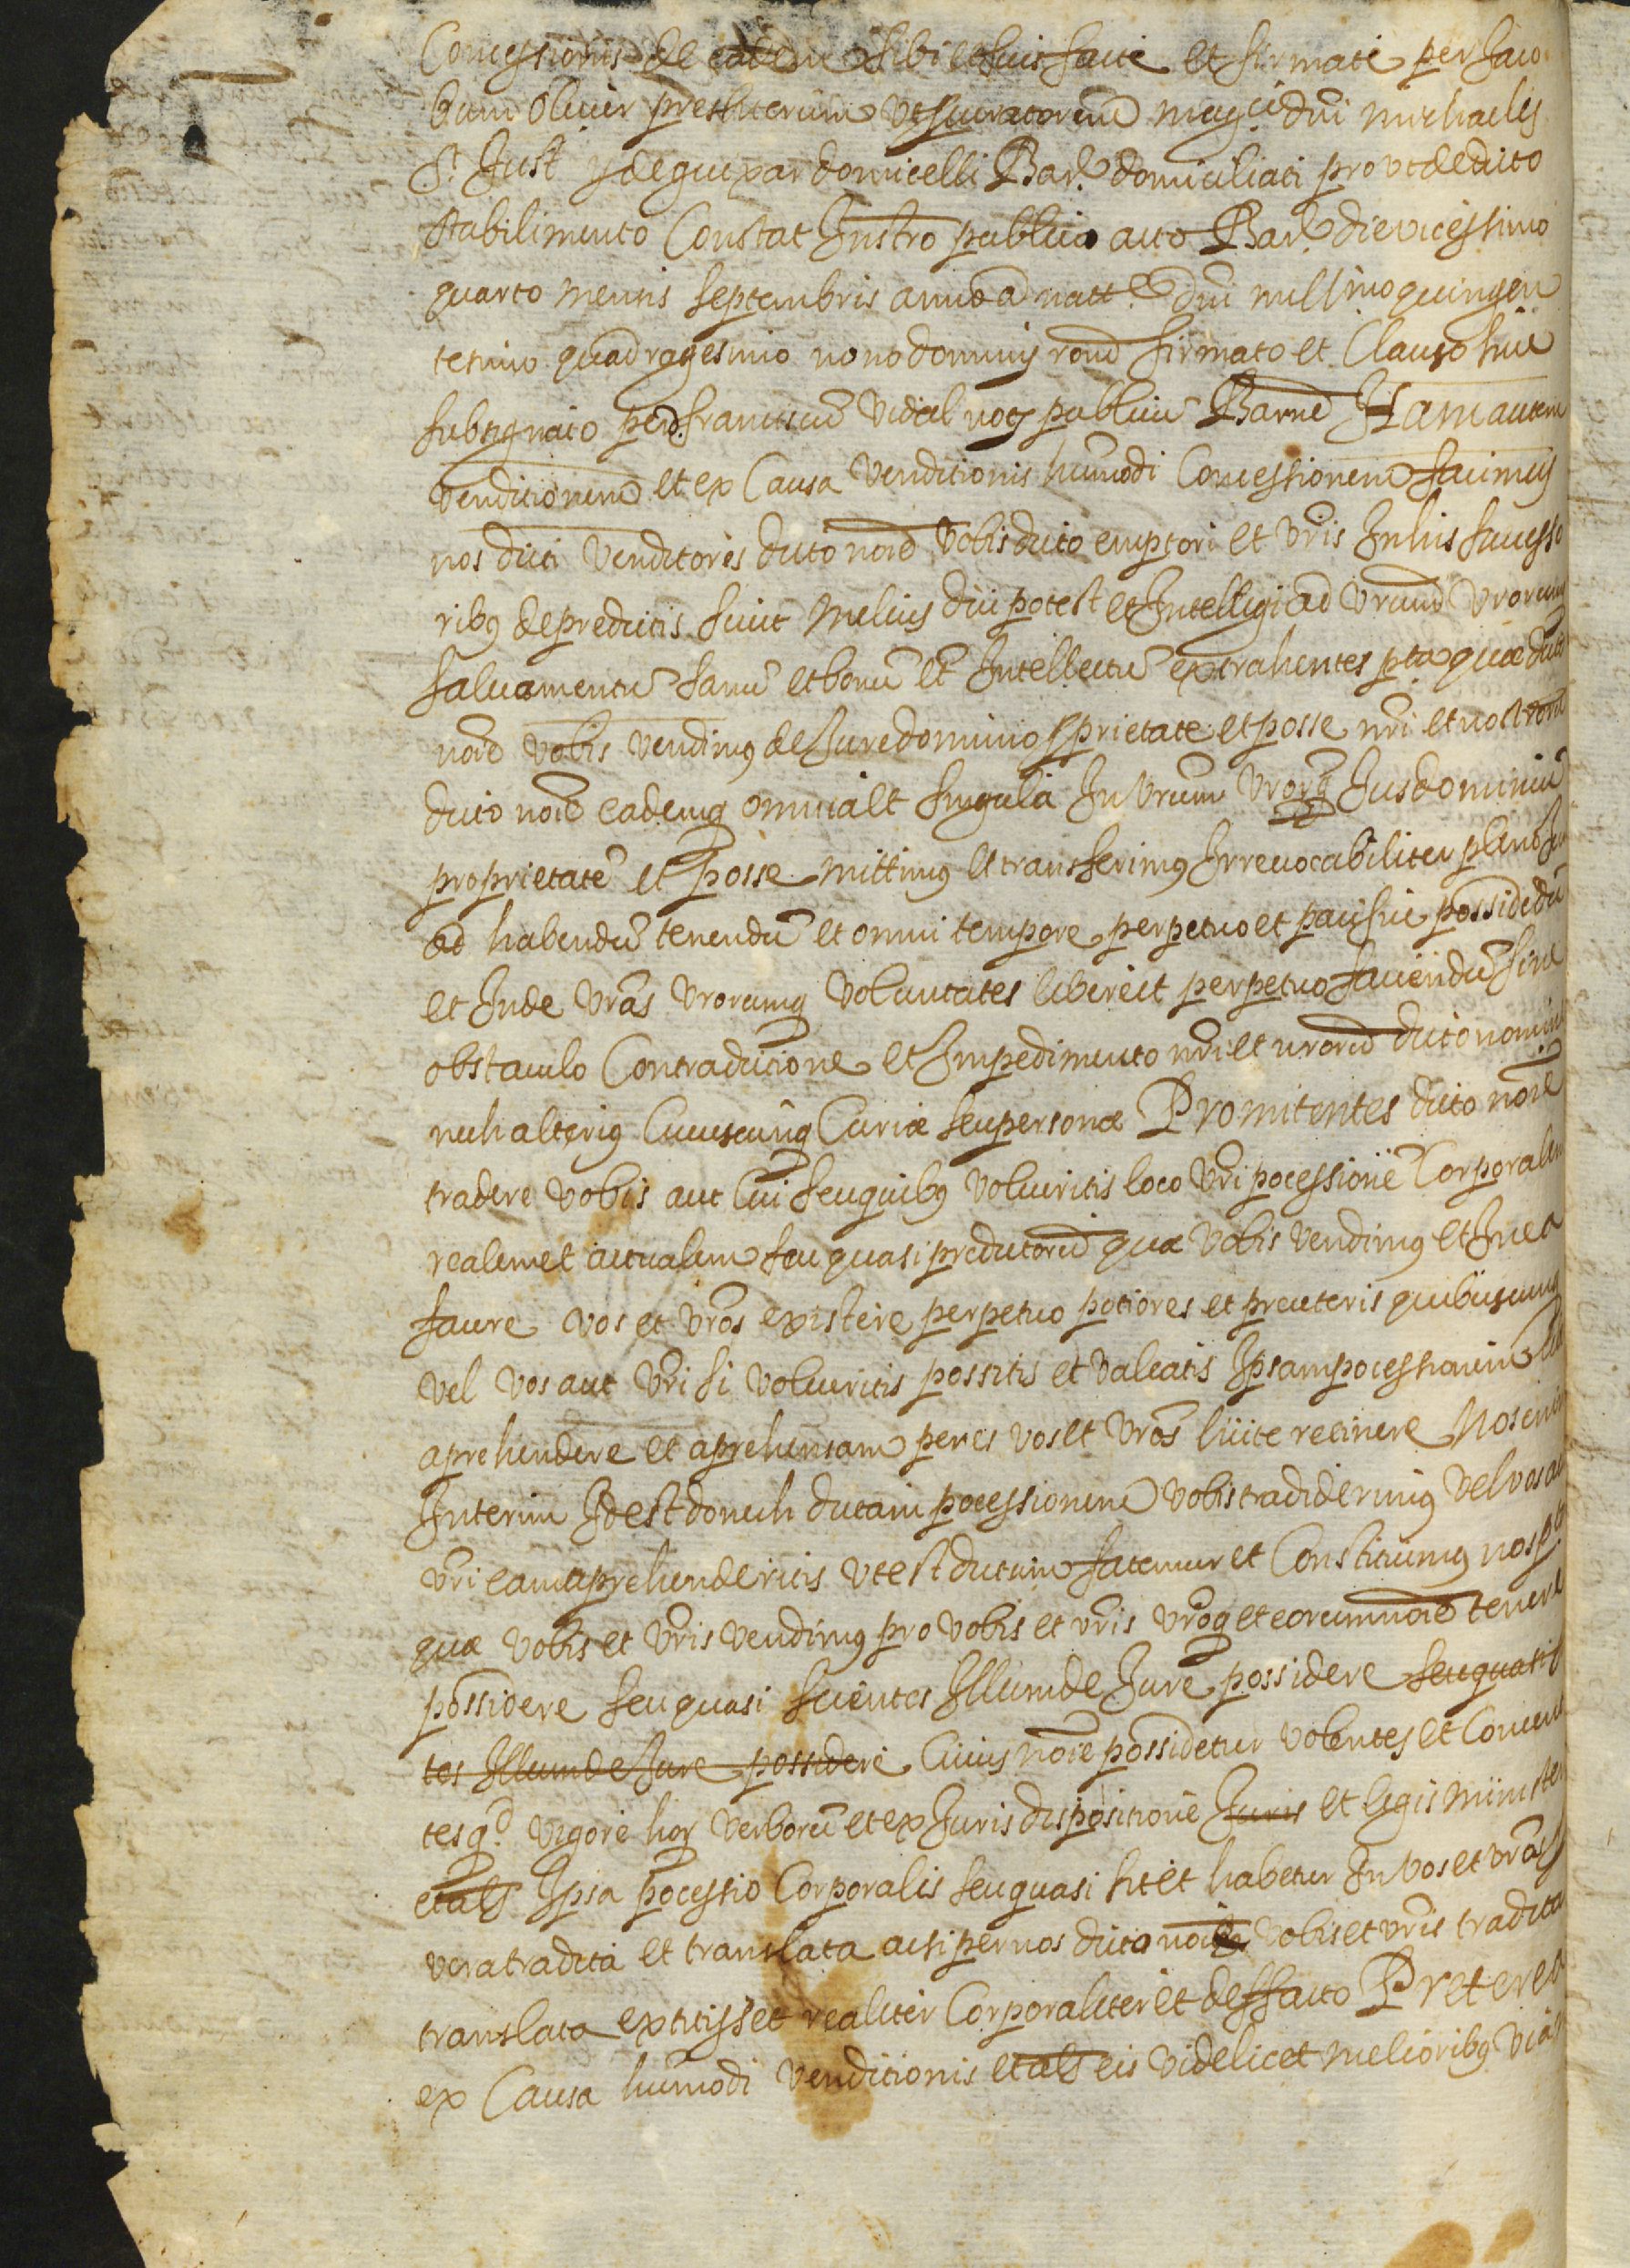 Concessionis de eadem sibi et suis facte et firmate per Jaco
bum Oliuer presbiterum vt procuratorem mag.ci dñi michaelis
S.t Just y de guixar domicelli Bar.e domiciliati pro vt de dicto
stabilimento Constat Instro publico acto Bar.e die vicessimo
quarto mensis septembris anno a natt.e dñi millmo quingen
tesimo quadragesimo nono dominis rond firmato et Clauso siue
subsignato per d. franciscũ Vidal notm publicũ Barñe Ham autem
venditionem et ex Causa venditionis hũmodi Concessionem facimus
nos dicti venditores dicto noie vobis dicto emptori et vris In his successo
ribꝰ de predictis sicut melius dici potest et Intelligi ad vrum vrorum
saluamentũ sanũ et bonũ et Intellectũ extrahentes pta quæ dicto
noie vobis vendimꝰ de Jure dominio pprietate et posse nri et nostrorum
dicto noie eademq omnia et singula In vrum vrorq Jus dominiũ
proprietatẽ et posse mittimꝰ et transferimꝰ Irreuocabiliter pleno Ju
ad habendũ tenendũ et omni tempore perpetuo et pacifice possidẽdũ
et Inde vras vrorumq voluntates libere et perpetuo faciendũ sine
obstaculo Contradictione et Impedimento nri et nrorũ dicto nomine
nech alteriꝰ Cuiuscunq Curiæ seu personæ Promitentes dicto noie
tradere vobis aut Cui seu quibꝰ volueritis loco vri pocessionẽ Corporalem
realem et actualem seu quasi predictorũ quæ vobis vendimꝰ et In ea
facere vos et vros existere perpetuo potiores et preceteris quibuscunq
vel vos aut vri si volueritis possitis et valeatis Ipsam pocessionem
aprehendere et aprehensam penes vos et vros licite retinere Nos enim
Interim Idest donech dictam pocessionem vobis tradiderimꝰ vel vos aut
vri eam aprehenderitis vt est dictum fatemur et Constituimꝰ nos pta
quæ vobis et vris vendimꝰ pro vobis et vris vroq et eorum noie tenere
possidere seu quasi scientes Illum de Jure possidere seu quasi
tes Illum de Jure possidere Cuius noie possidetur volentes et Consen
tes q.d vigore hoꝝ verborũ et ex Juris dispositione Juris et legis ministe
et als Ipsa pocessio Corporalis seu quasi sit et habetur In vos et vros
vera tradita et translata acsi per nos dicto noie vobis et vris tradita
translata extitisset realiter Corporaliter et deffacto Preterea
ex Causa hũmodi venditionis et als eis videlicet melioribꝰ via